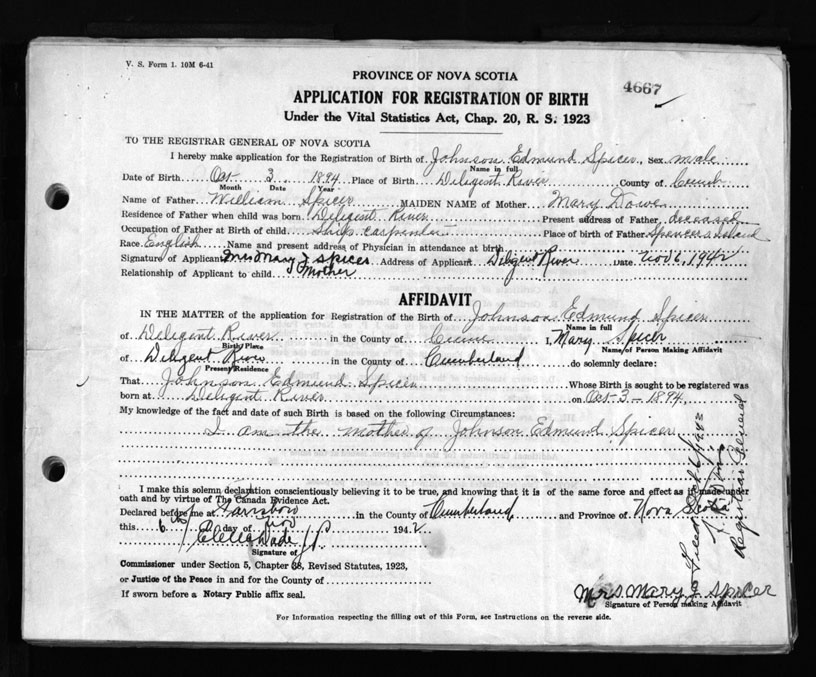 V. S. Form 1. 10M 6-41
PROVINCE OF NOVA SCOTIA
4667
APPLICATION FOR REGISTRATION OF BIRTH
Under the Vital Statistics Act, Chap. 20, R. S. 1923
TO THE REGISTRAR GENERAL OF NOVA SCOTIA
I hereby make application for the Registration of Birth of Johnson Edmund Spicer Sex male
Name in full
Date of Birth Oct 3 1894 Place of Birth Diligent River County of Cumb
Month Date Year
Name of Father William Spicer MAIDEN NAME of Mother Mary Dowe
Residence of Father when child was born Diligent River Present address of Father deceased
Occupation of Father at Birth of child Ship carpenter Place of birth of Father Spencers Island
Race English Name and present address of Physician in attendance at birth
Signature of Applicant Mrs Mary J Spicer Address of Applicant Diligent River Date Nov 6, 1942
Relationship of Applicant to child Mother
AFFIDAVIT
IN THE MATTER of the application for Registration of the Birth of Johnson Edmund Spicer
Name in full
of Diligent River in the County of I, Mary Spicer
Birth Place Name of Person Making Affidavit
of Diligent River in the County of Cumberland do solemnly declare:
Present Residence
That Johnson Edmund Spicer Whose Birth is sought to be registered was
born at Diligent River on Oct-3-1894
My knowledge of the fact and date of such Birth is based on the following Circumstances:
I am the mother of Johnson Edmund Spicer
I make this solemn declaration conscientiously believing it to be true, and knowing that it is of the same force and effect as if made under
oath and by virtue of The Canada Evidence Act.
Declared before me at Parrsboro in the County of Cumberland and Province of Nova Scotia
this 6th day of Nov 1942
Signature of
Commissioner under Section 5, Chapter 38, Revised Statutes, 1923,
or Justice of the Peace in and for the County of
If sworn before a Notary Public affix seal.
Mrs. Mary J Spicer
Signature of Person making Affidavit
For Information respecting the filling out of this Form, see Instructions on the reverse side.
Registrar General